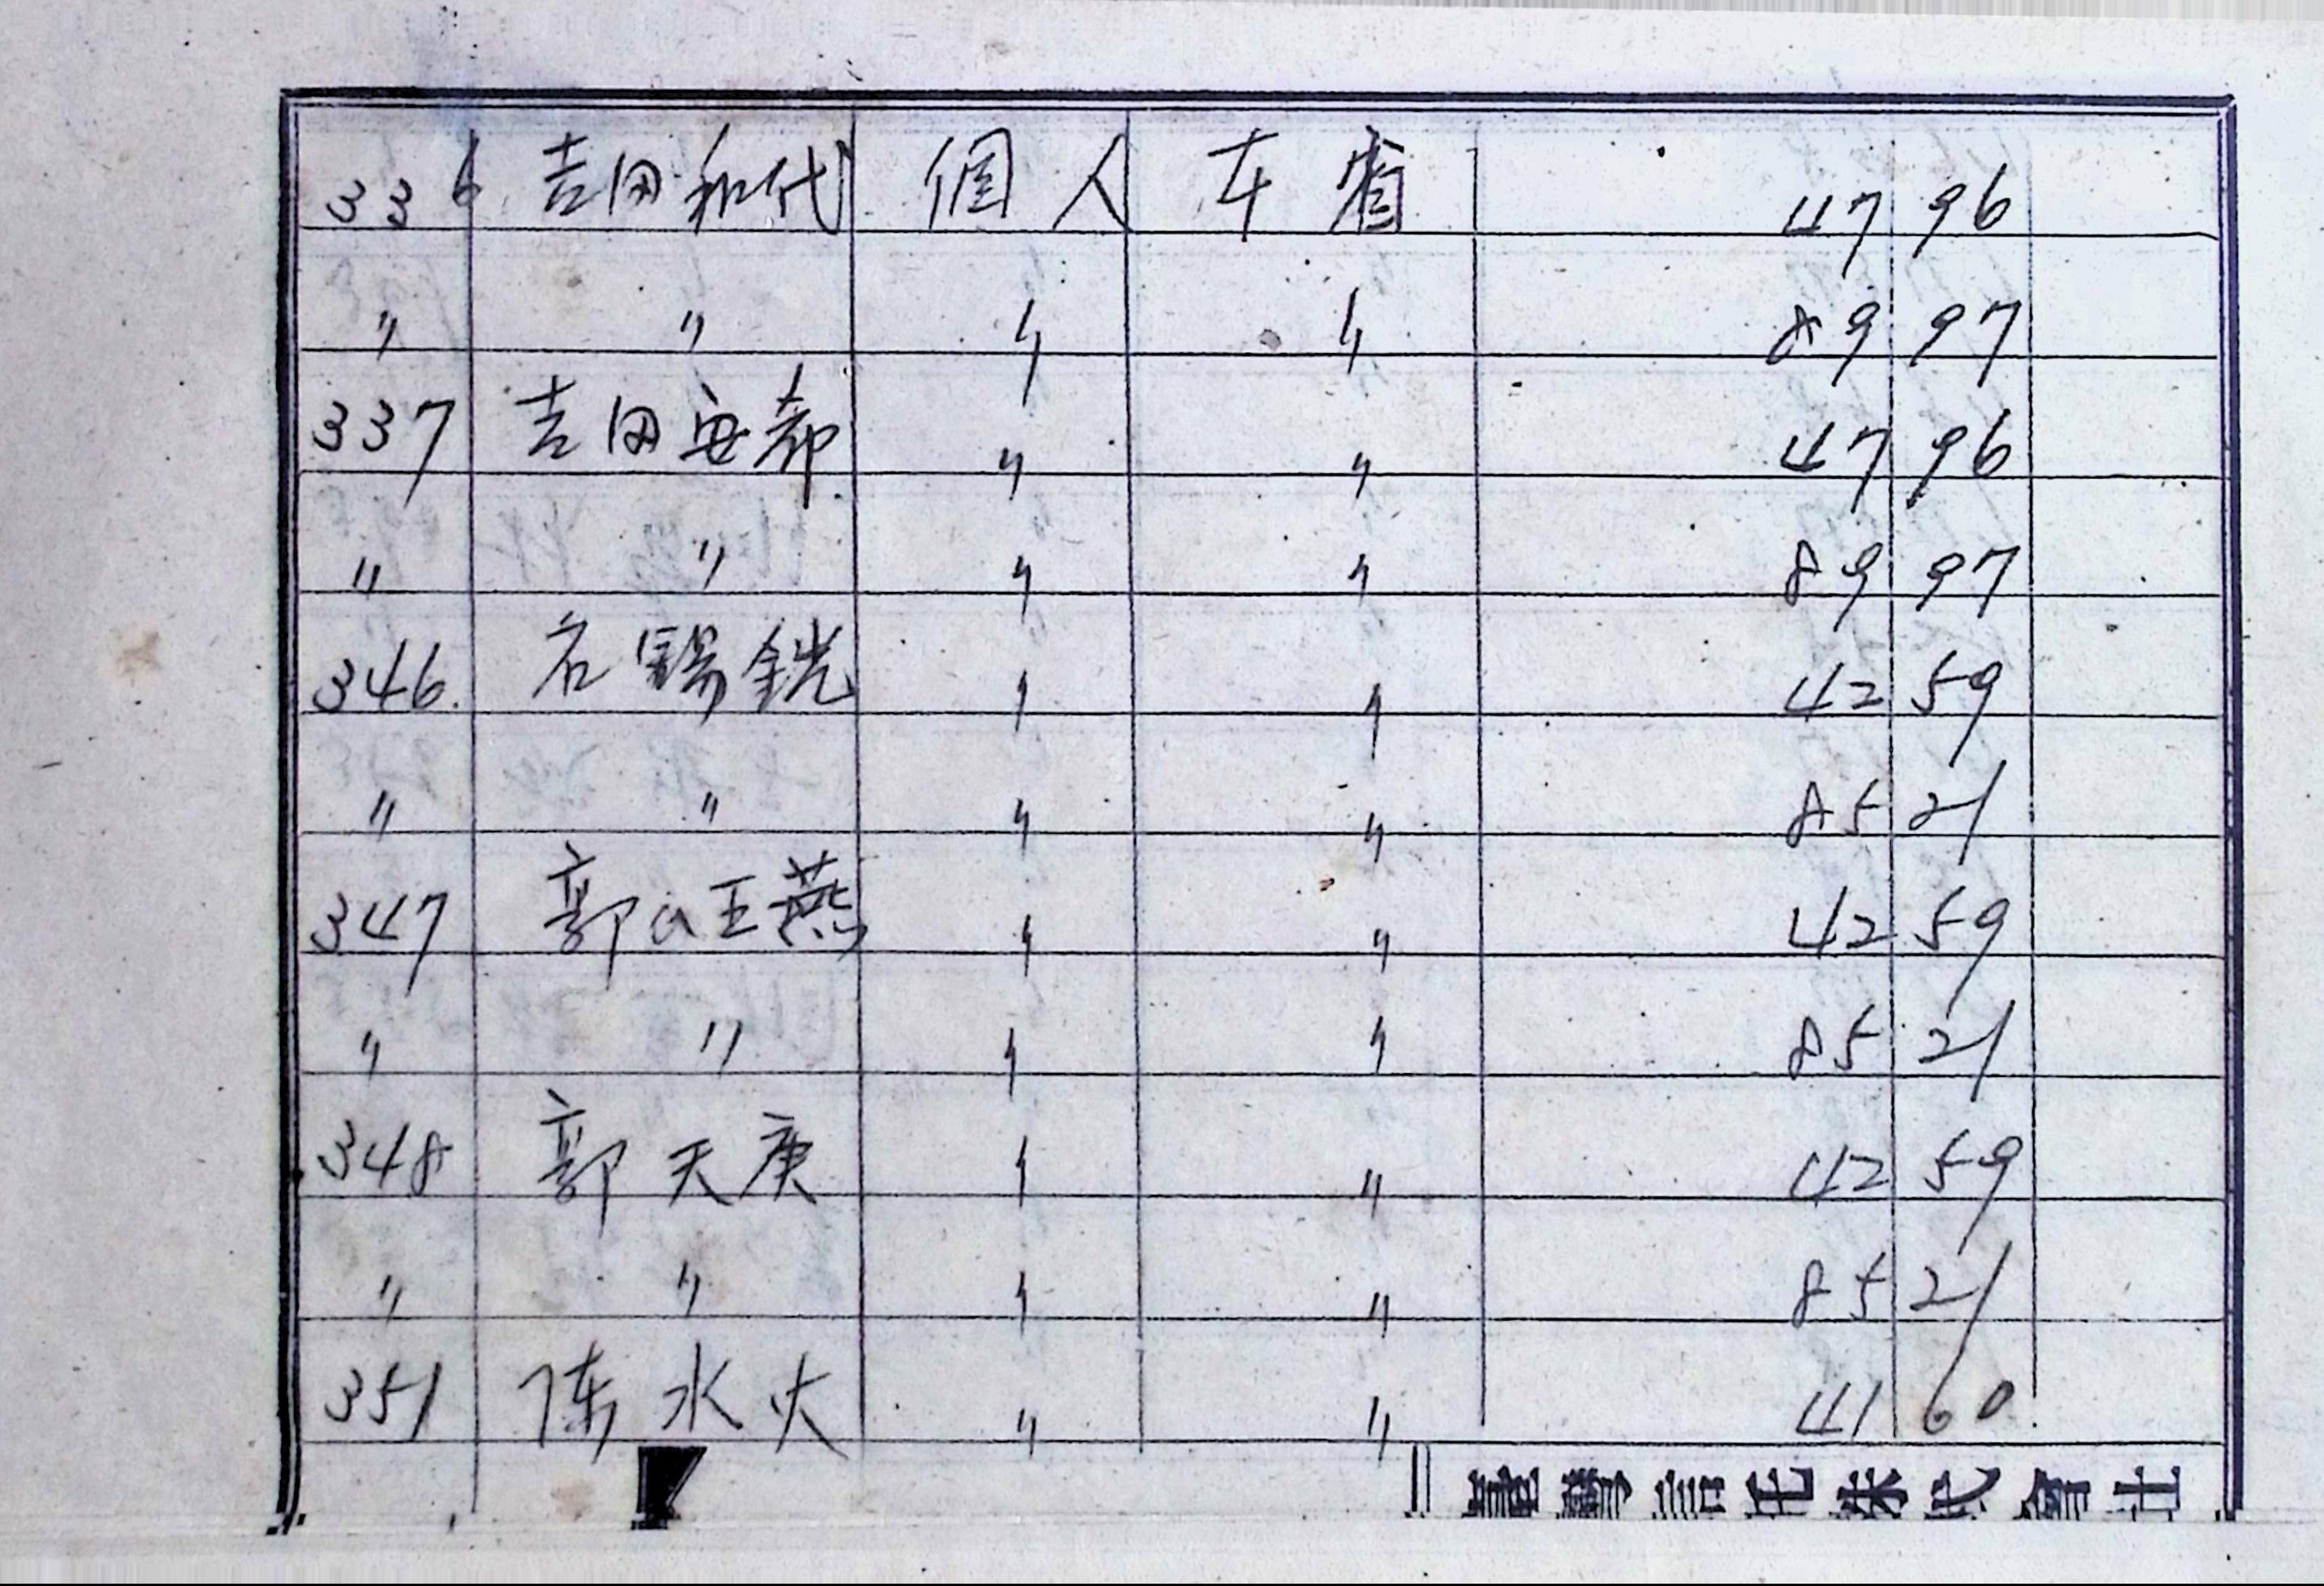 336 吉田和代 個人 本省 47 96
〃 〃 〃 〃 89 97
337 吉田安都 〃 〃 47 96
〃 〃 〃 〃 89 97
346. 石錫銧 〃 〃 42 59
〃 〃 〃 〃 85 21
347 郭 王燕 〃 〃 42 59
〃 〃 〃 〃 85 21
348 郭天庚 〃 〃 42 59
〃 〃 〃 〃 85 21
351 陈水火 〃 〃 41 60
株式會社